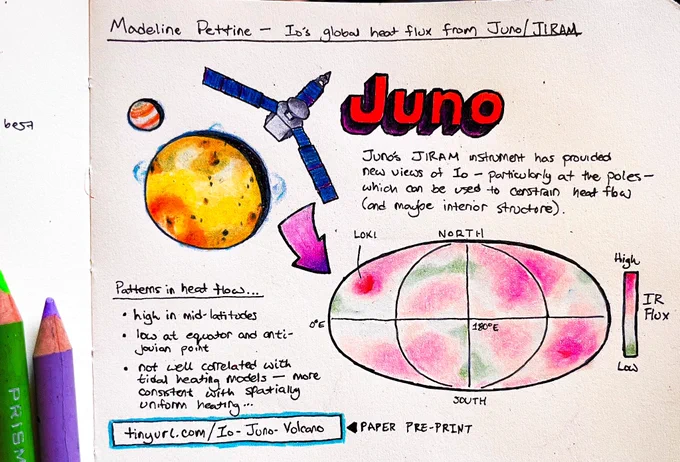 Madeline Pettine — Io's global heat flux from Juno/JIRAM
best
Juno
Juno's JIRAM instrument has provided
new views of Io — particularly at the poles —
which can be used to constrain heat flow
(and maybe interior structure).
LOKI
NORTH
0°E
180°E
SOUTH
High
IR
Flux
Low
Patterns in heat flow...
• high in mid-latitudes
• low at equator and anti-
jovian point
• not well correlated with
tidal heating models — more
consistent with spatially
uniform heating...
tinyurl.com/Io-Juno-Volcano
◀ PAPER PRE-PRINT
PRISM